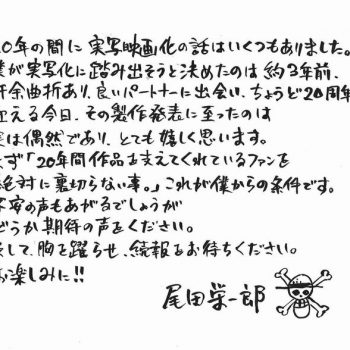 0年の間に実写映画化の話はいくつもありました。
僕が実写化に踏み出そうと決めたのは約3年前、
余曲折あり、良いパートナーに出会い、ちょうど20周年
迎える今日、その製作発表に至ったのは
実は偶然であり、とても嬉しく思います。
まず「20年間作品を支えてくれているファンを
絶対に裏切らない事。」これが僕からの条件です。
不安の声もあがるでしょうが
どうか期待の声をください。
して、胸を躍らせ、続報をお待ちください。
お楽しみに!!
尾田栄一郎